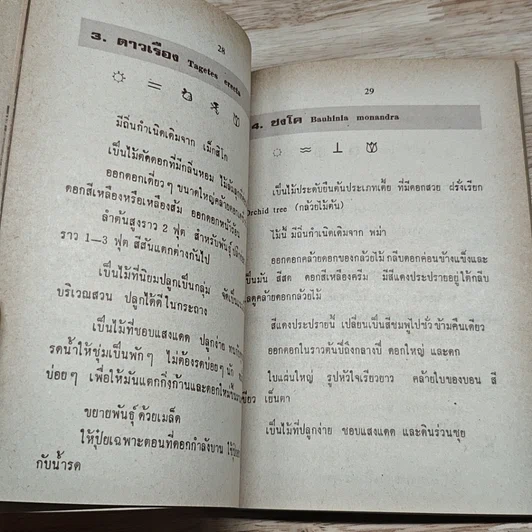 28
3. ดาวเรือง Tagetes erecta
มีถิ่นกำเนิดเดิมจาก เม็กสิโก
เป็นไม้ตัดดอกที่มีกลิ่นหอม
ออกดอกเดี่ยวๆ ขนาดใหญ่
ดอกสีเหลืองหรือเหลืองส้ม ออกดอกหน้า
ลำต้นสูงราว 2 ฟุต สำหรับพันธุ์
ราว 1–3 ฟุต สีสันแตกต่างกันไป
เป็นไม้ที่นิยมปลูกเป็นกลุ่ม
บริเวณสวน ปลูกได้ดีในกระถาง
เป็นไม้ที่ชอบแสงแดด ปลูกง่าย
รดน้ำให้ชุ่มเป็นพักๆ ไม่ต้องรดบ่อยๆ นัก
บ่อยๆ เพื่อให้มันแตกกิ่งก้านและดอกใหม่
ขยายพันธุ์ด้วยเมล็ด
ให้ปุ๋ยเฉพาะตอนที่ดอกกำลังบาน
กับน้ำรด
29
4. ชงโค Bauhinia monandra
เป็นไม้ประดับยืนต้นประเภทเตี้ย ที่มีดอกสวย ฝรั่งเรียก
Orchid tree (กล้วยไม้ต้น)
ไม้นี้ มีถิ่นกำเนิดเดิมจาก พม่า
ออกดอกคล้ายดอกของกล้วยไม้ กลีบดอกค่อนข้างแข็งและ
เป็นมัน สีสด ดอกสีเหลืองครีม มีสีแดงประปรายอยู่ใต้กลีบ
ดูคล้ายดอกกล้วยไม้
สีแดงประปรายนี้ เปลี่ยนเป็นสีชมพูไปชั่วข้ามคืนเดียว
ออกดอกในราวต้นปีถึงกลางปี ดอกใหญ่ และดก
ใบแฉ่นใหญ่ รูปหัวใจเรียวยาว คล้ายใบของบอน สี
เขียว เย็นตา
เป็นไม้ที่ปลูกง่าย ชอบแสงแดด และดินร่วนซุย